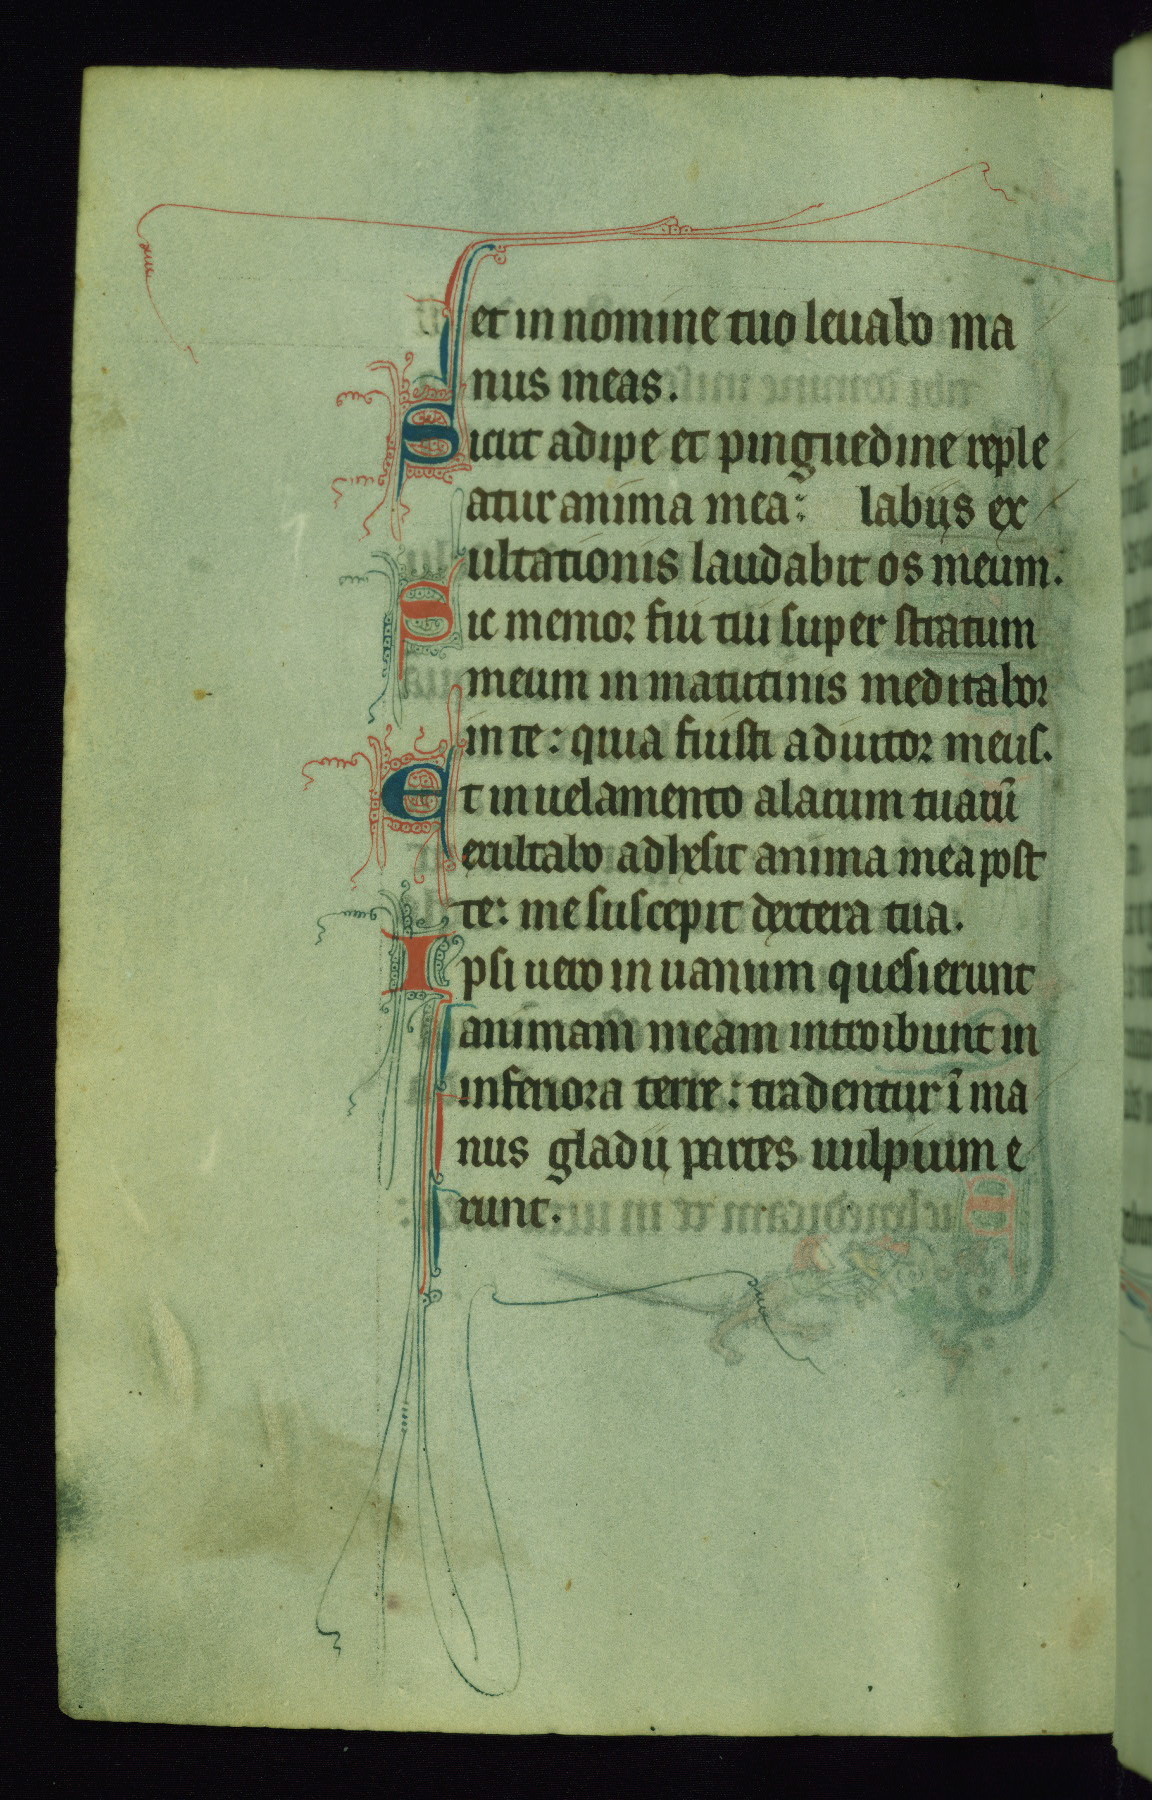 et in nomine tuo leuabo ma
nus meas.
Sicut adipe et pinguedine reple
atur anima mea: labijs ex
ultationis laudabit os meum.
Sic memor fui tui super stratum
meum in matutinis meditabor
in te: quia fuisti adiutor meus.
Et in uelamento alarum tuarū
exultabo adhesit anima mea post
te: me suscepit dextera tua.
Ipsi uero in uanum quesierunt
animam meam introibunt in
inferiora terre: tradentur ī ma
nus gladij partes uulpium e
runt.